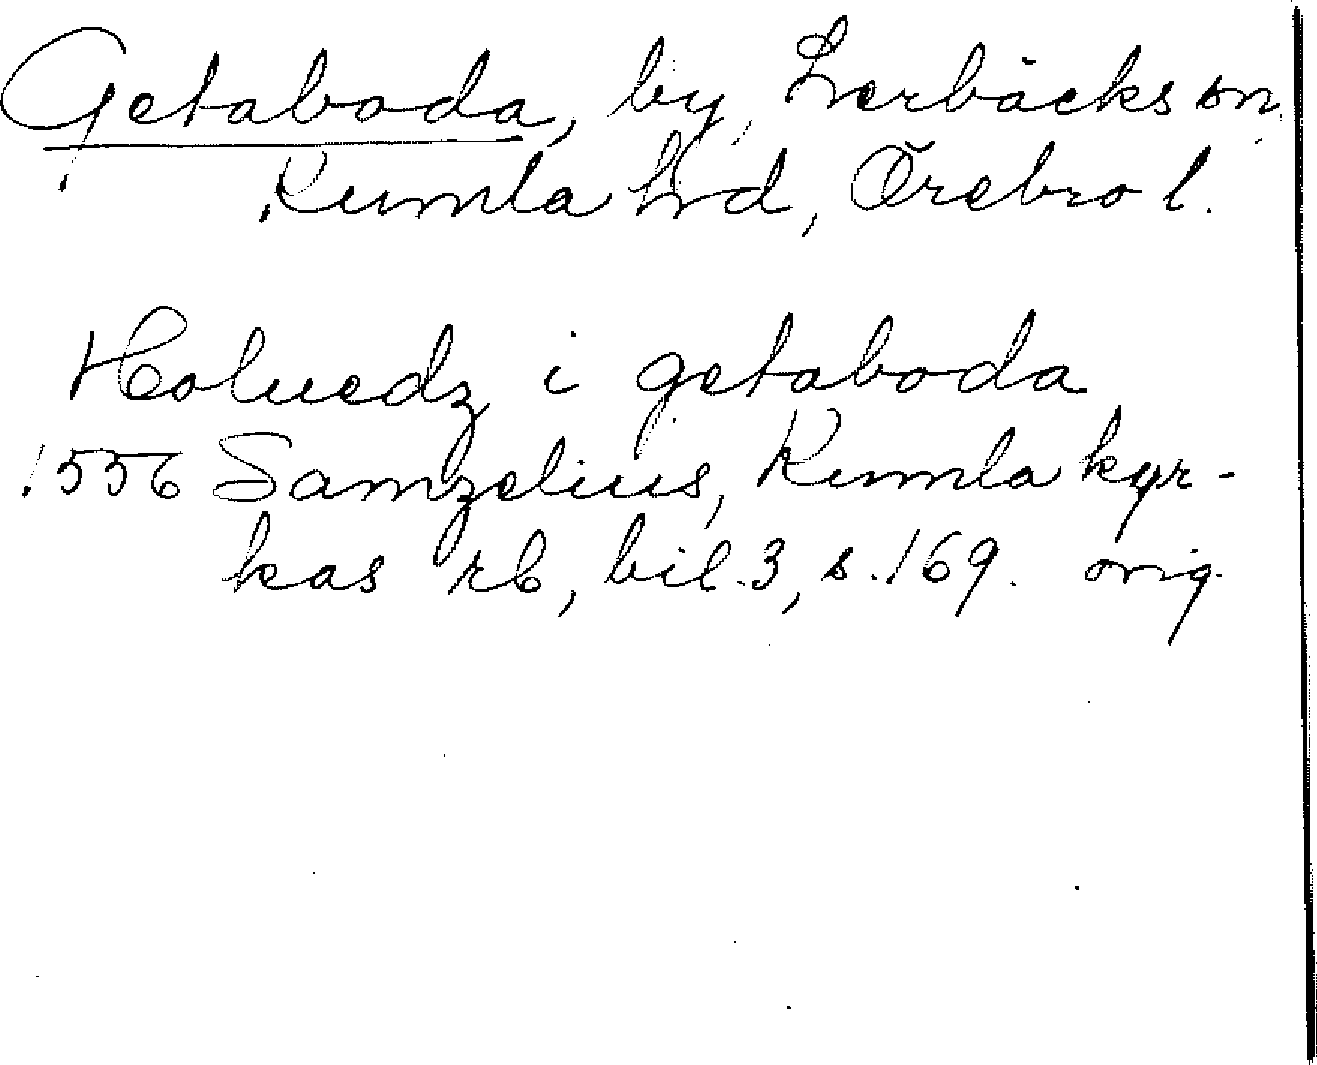 Getaboda, by, Lerbäcks sn,
Kumla hrd, Örebro l.
Holuedz i getaboda
1556 Samzelius, Kumla kyr-
kas rb, bil. 3, s. 169. orig.